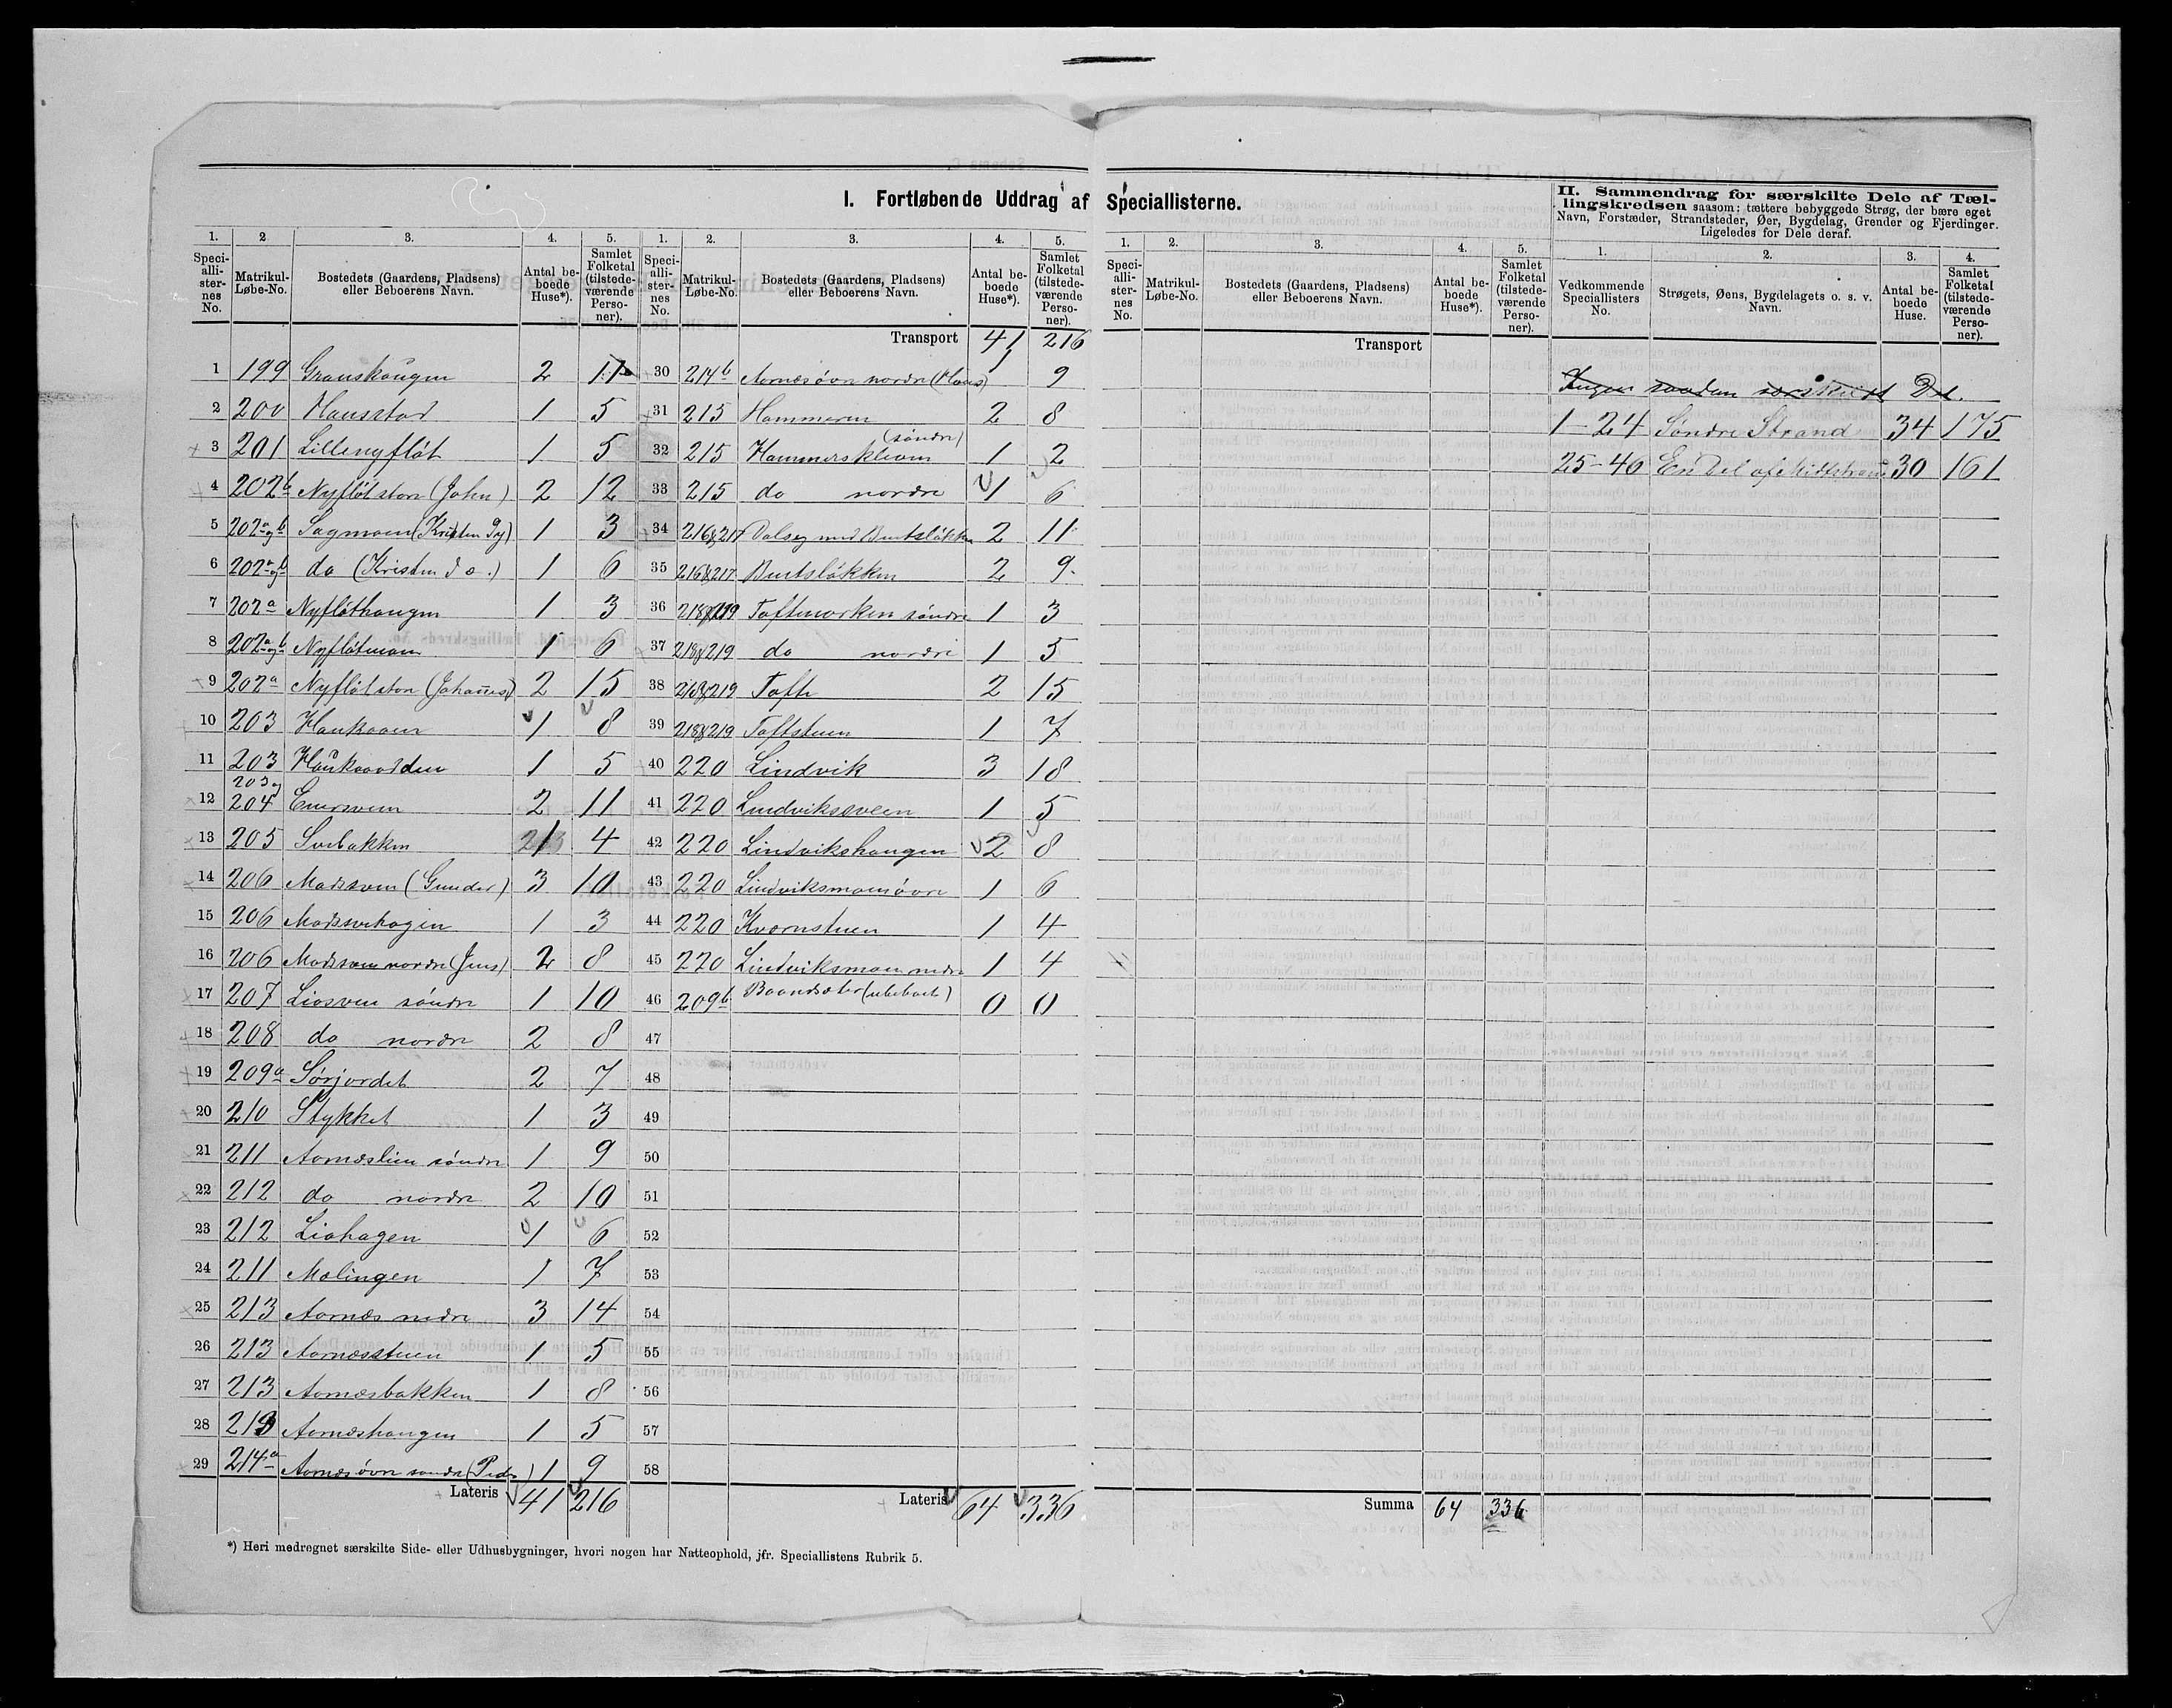 I. Fortløbende Uddrag af Speciallisterne.
II. Sammendrag for særskilte Dele af Tæl-
lingskredsen saasom: tættere bebyggede Strøg, der bære eget
Navn, Forstæder, Strandsteder, Øer, Bygdelag, Grender og Fjerdinger.
Ligeledes for Dele deraf.
1. 2. 3. 4. 5.
Speciallisternes No. Matrikul-Løbe-No. Bostedets (Gaardens, Pladsens) eller Beboerens Navn. Antal beboede Huse*). Samlet Folketal (tilstedeværende Personer).
1 199 Granskaugen 2 11
2 200 Hansstad 1 5
3 201 Lillenyfløt 1 5
4 202b Nyfløtston (John) 2 12
5 202a og b Sagmoen (Kristen Gy) 1 3
6 202a og b do (Kristen J o.) 1 6
7 202a Nyfløthaugen 1 3
8 202a og b Nyfløtmoen 1 6
9 202a Nyfløtston (Johannes) 2 15
10 203 Haukaaen 1 8
11 203 Haukaadden 1 5
12 203 og 204 Enersveen 2 11
13 205 Svebakken 1 4
14 206 Madssveen (Gunder) 3 10
15 206 Madssvehagen 1 3
16 206 Madssveen nordre (Jens) 2 8
17 207 Liosveen søndre 1 10
18 208 do nordre 2 8
19 209a Sørjordet 2 7
20 210 Stykket 1 3
21 211 Aarnæslien søndre 1 9
22 212 do nordre 2 10
23 212 Liahagen 1 6
24 211 Mælingen 1 7
25 213 Aarnæs nedre 3 14
26 213 Aarnæsstuen 1 5
27 213 Aarnæsbakken 1 8
28 213 Aarnæshaugen 1 5
29 214a Aarnæs øvre søndre (Peder) 1 9
Lateris 41 216
1. 2. 3. 4. 5.
Speciallisternes No. Matrikul-Løbe-No. Bostedets (Gaardens, Pladsens) eller Beboerens Navn. Antal beboede Huse*). Samlet Folketal (tilstedeværende Personer).
Transport 41 216
30 214b Aarnæs øvre nordre (Hans) 1 9
31 215 Hammeren 2 8
32 215 Hammerskleven (søndre) 1 2
33 215 do nordre 1 6
34 216 & 217 Dalseg med Burtsløkken 2 11
35 216 & 217 Burtsløkken 2 9
36 218 & 219 Toftemarken søndre 1 3
37 218 & 219 do nordre 1 5
38 218 & 219 Tofte 2 15
39 218 & 219 Toftstuen 1 7
40 220 Lindvik 3 18
41 220 Lindviksveen 1 5
42 220 Lindvikshaugen 2 8
43 220 Lindviksmoen øvre 1 6
44 220 Kvernstuen 1 4
45 220 Lindviksmoen nedre 1 4
46 209b Baandsæter (ubeboet) 0 0
47
48
49
50
51
52
53
54
55
56
57
58
Lateris 64 336
1. 2. 3. 4. 5.
Speciallisternes No. Matrikul-Løbe-No. Bostedets (Gaardens, Pladsens) eller Beboerens Navn. Antal beboede Huse*). Samlet Folketal (tilstedeværende Personer).
Transport
Summa 64 336
1. 2. 3. 4.
Vedkommende Speciallisters No. Strøgets, Øens, Bygdelagets o. s. v. Navn. Antal beboede Huse. Samlet Folketal (tilstedeværende Personer).
Ingen saadan særskilt Del.
1-24 Søndre Strand 34 175
25-46 En Del af Midtstrand 30 161
*) Heri medregnet særskilte Side- eller Udhusbygninger, hvori nogen har Natteophold, jfr. Speciallistens Rubrik 5.